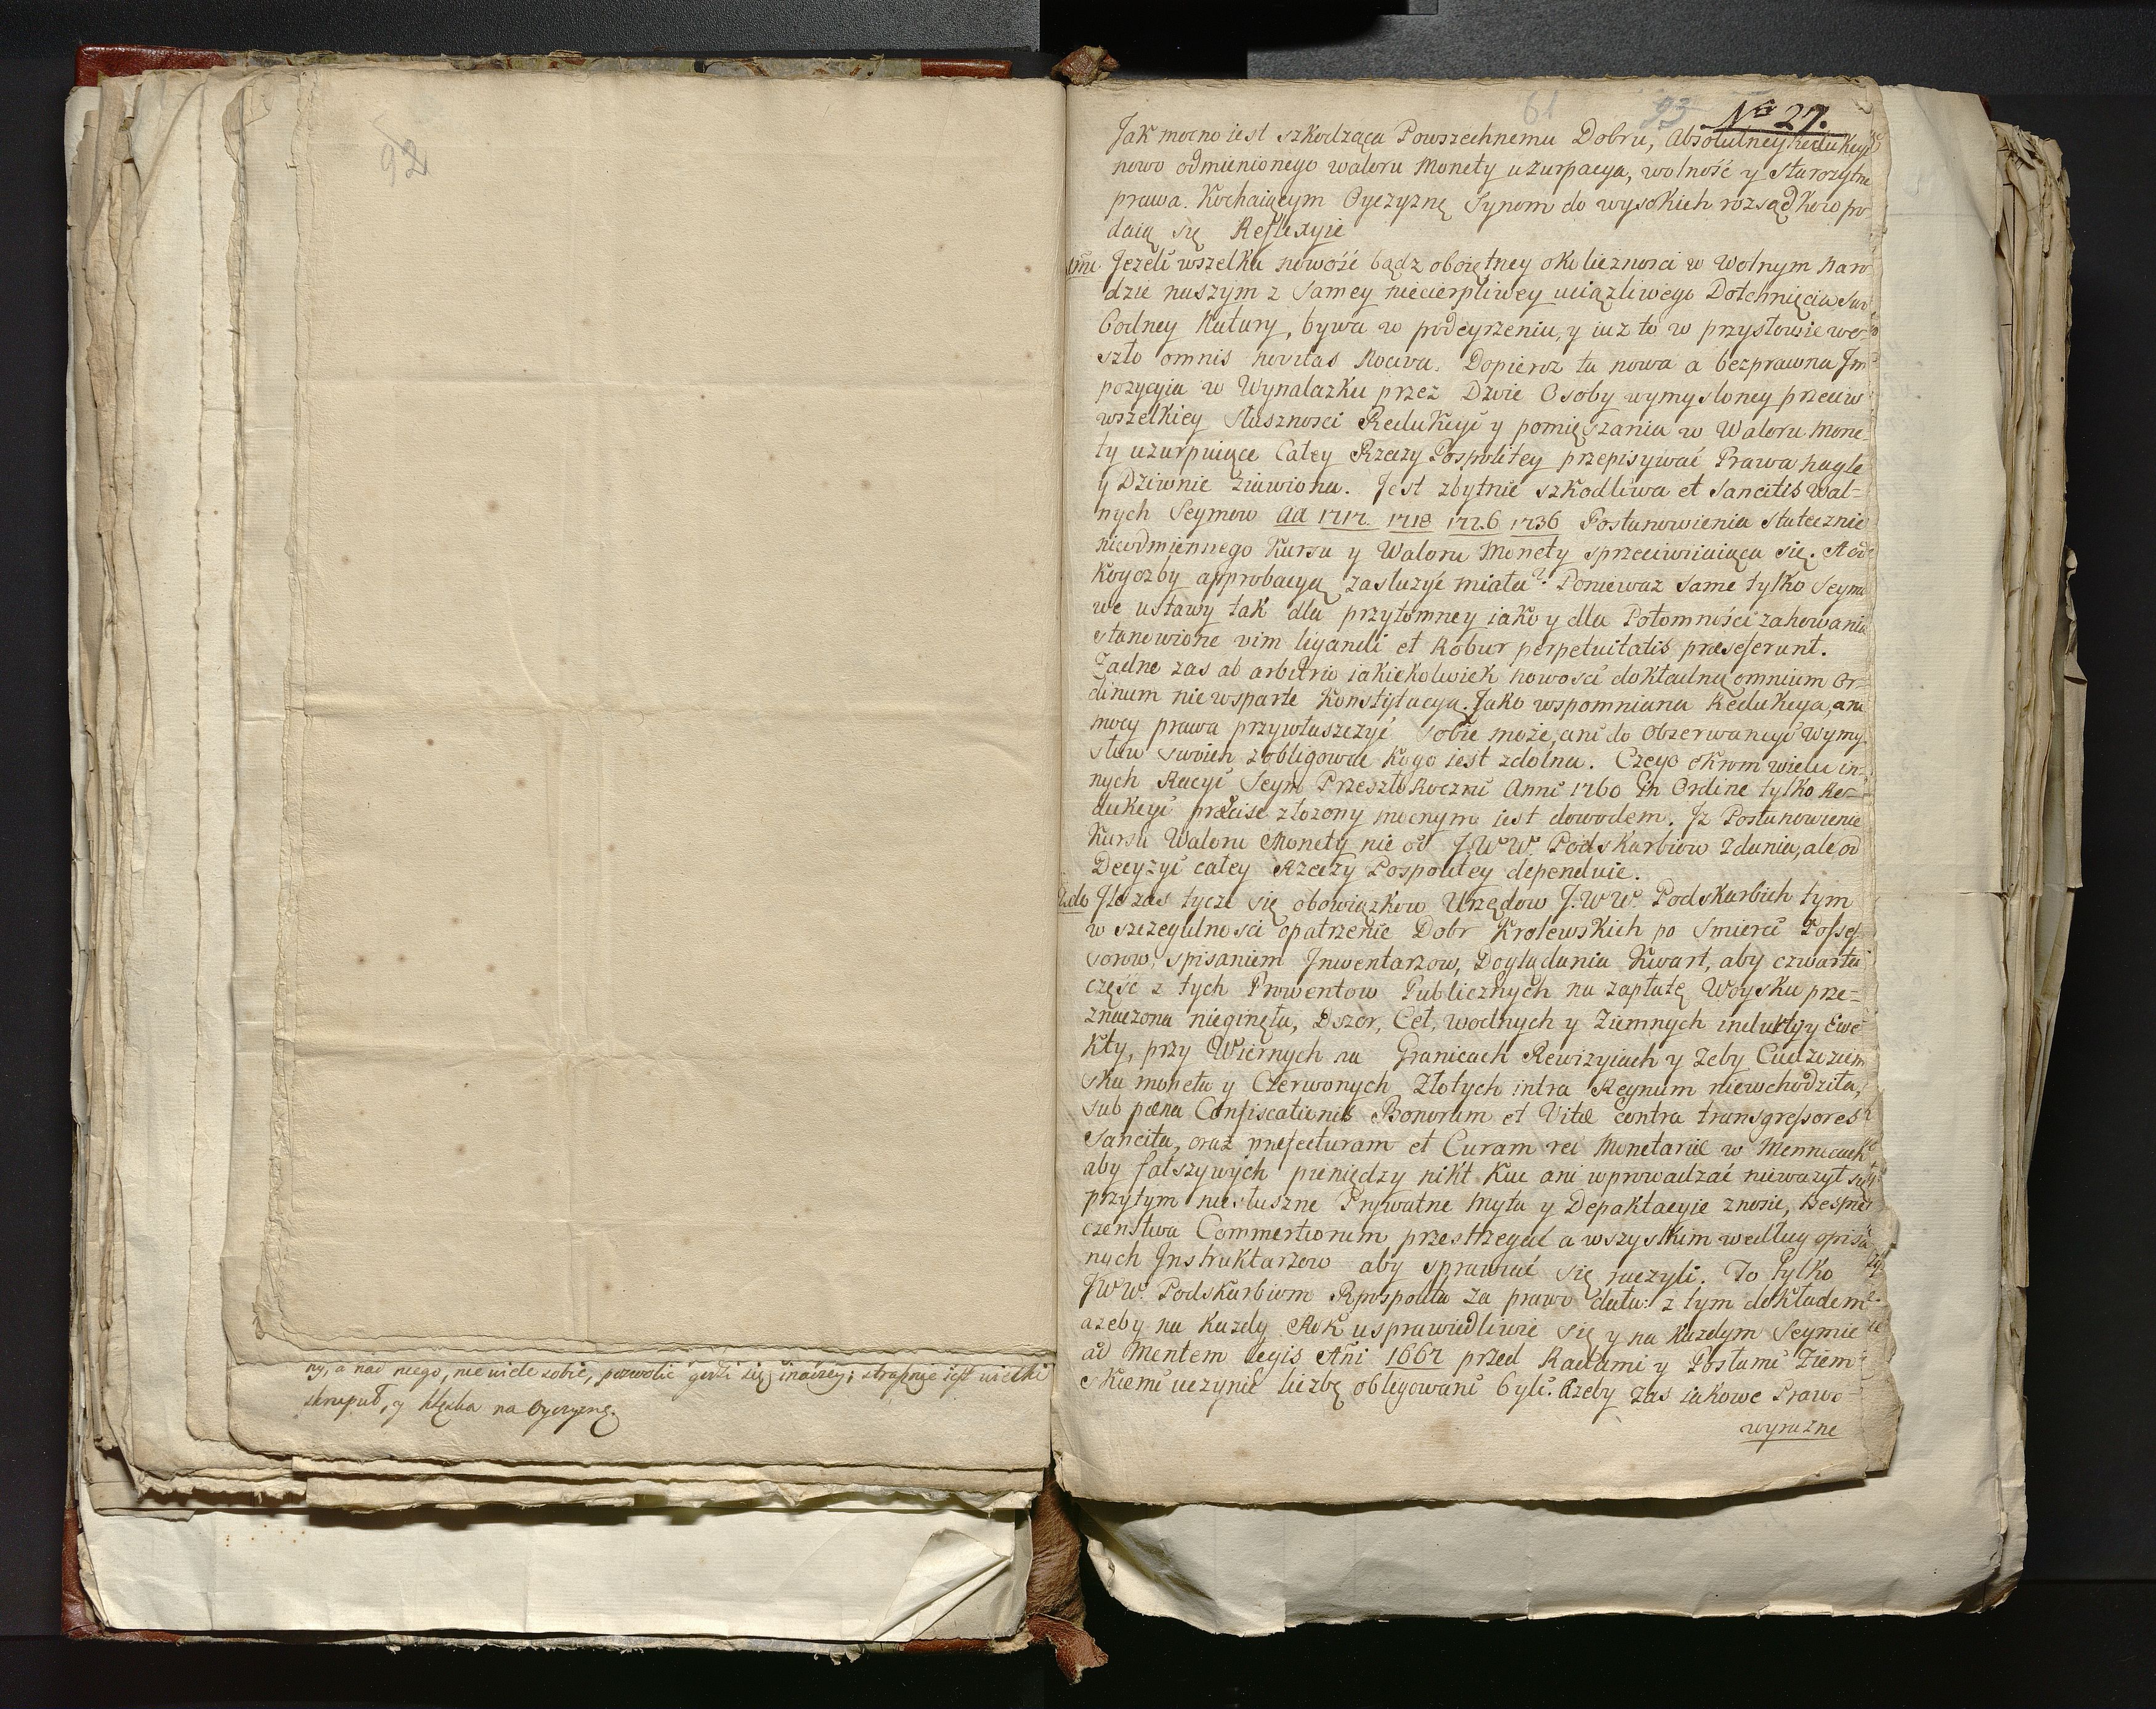 92
ny, a nad niego, nie wiele sobie, pozwolić godzi się inaczey; straszny jest wielki
skrupuł, y klęska na Oyczyznę.
61 93 No 27.
Jak mocno iest szkodząca Powszechnemu Dobru, Absolutney Redukcyi
nowo odmienionego waloru Monety uzurpacya, wolność y Starozytne
prawa. Kochaiącym Oyczyznę Synom do wysokich rozsądkow po
daią się Reflexyie
1mo Jezeli wszelka nowość bądz oboiętney okolicznosci w Wolnym naro
dzie naszym z Samey niecierpliwey uciązliwego Dotchnięcia Swo
bodney Natury, bywa w podeyrzeniu, y iuz to w przysłowie we-
szło omnis novitas Nociva. Dopieroz ta nowa a bezprawna Jm
pozycyia w Wynalazku przez Dwie Osoby wymysloney przeciw
wszelkiey Słusznosci Redukcyi y pomięszania w Waloru Mone-
ty uzurpuiące Całey Rzeczy Pospolitey przepisywać Prawa nagle
y Dziwnie ziawiona. Jest zbytnie szkodliwa et Sancitis Wal-
nych Seymow ad 1717. 1718 1726 1736 Postanowienia Statecznie
nieodmiennego Kursu y Waloru Monety sprzeciwiaiąca się. A od
kogozby approbacyą zasłuzyć miała? Poniewaz Same tylko Seymo
we ustawy tak dla przytomney iako y dla Potomności zachowania
stanowione vim ligandi et Robur perpetuitatis præseferunt.
Zadne zas ab arbitrio iakiekolwiek nowosci dokładną omnium Or-
dinum nie wsparte Konstytucyą. Jako wspomniana Redukcya, ani
mocy prawa przywłaszczyć Sobie może, ani do Obzerwancyi Wymy
słow swoich zobligować kogo iest zdolna. Czego okrom wielu in-
nych Racyi Seym Przeszło Roczni Anni 1760 in Ordine tylko Re-
dukcyi præcise złozony mocnym iest dowodem. Jz Postanowienie
Kursu Waloru Monety nie od J.W W. Podskarbiow zdania, ale od
Decyzyi całey Rzeczy Pospolitey dependuie.
2do Jle zas tycze się obowiązkow Urzędow J.W W. Podskarbich tym
w szczegulnosci opatrzenie Dobr Krolewskich po Smierci Possess
sorow, spisaniem Jnwentarzow, Doglądania Kwart, aby czwarta
część z tych Prowentow Publicznych na zapłatę Woysku prze-
znaczona nieginęła, Dozor, Ceł, wodnych y Ziemnych indukty y Ewe
kty, przy Wiernych na Granicach Rewizyiach y Zeby Cudzoziem
ska moneta y Czerwonych Złotych intra Regnum niewchodziła,
sub pæna Confiscationis Bonorum et Vitæ contra transgressores
Sancita, oraz præfecturam et Curam rei Monetariæ w Mennicach
aby fałszywych pieniędzy nikt kuc ani wprowadzać nieważył się
przytym niesłuszne Prywatne Myta y Depaktacyie znosić, Bespie
czenstwa Commertiorum przestrzegać a wszystkim według opisa
nych Jnstruktarzow aby sprawiać się raczyli. To tylko
JW W. Podskarbiom Rpospolita za prawo dała: z tym dokładem
azeby na kazdy Rok usprawiedliwić się y na kazdym Seymie
ad Mentem Legis Ańi 1667 przed Radami y Posłami Ziem
skiemi uczynić liczbę obligowani byli. Azeby zas iakowe Prawo-
wyrazne